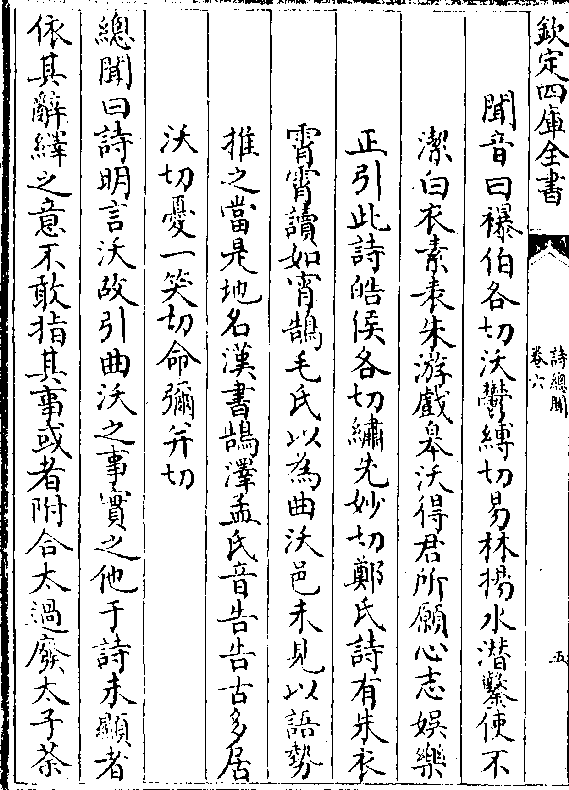 欽定四庫全書
詩總聞
卷六
五
聞音曰襮伯各切沃鬱縛切易林揚水潛鑿使不
潔白衣素表朱游戲皋沃得君所願心志娛樂
正引此詩皓侯各切繡先妙切鄭氏詩有朱衣
宵宵讀如宵鵠毛氏以為曲沃邑未見以語勢
推之當是地名漢書鵠澤孟氏音告告古多居
沃切憂一笑切命彌并切
總聞曰詩明言沃故引曲沃之事實之他于詩未顯者
依其辭繹之意不敢指其事或者附合太過廢太子荼